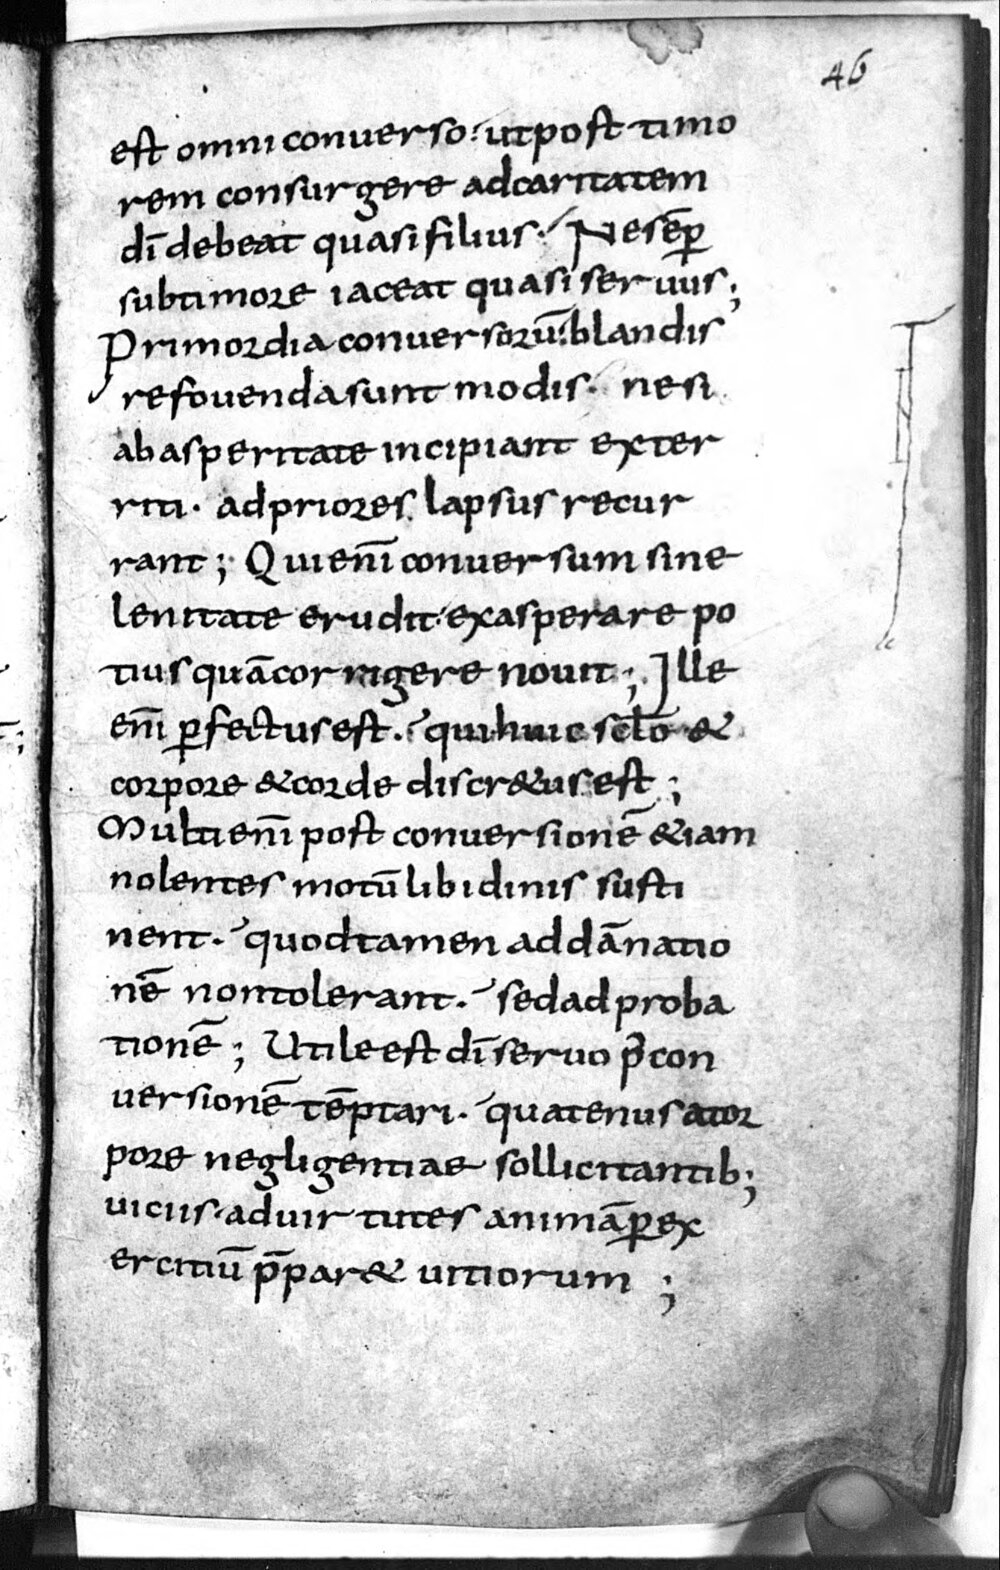 46
est omni converso. ut post timo
rem consurgere ad caritatem
dī debeat quasi filius. Ne sēꝑ
sub timore iaceat quasi servus;
Primordia conversorū. blandis
refovenda sunt modis. ne si
ab asperitate incipiant exter
riti. ad priores lapsus recur
rant; Qui enī conversum sine
lenitate erudit. exasperare po
tius quā corrigere novit; Ille
enī ꝑfectus est. qui huic sclo &
corpore & corde discr&us est;
Multi enī post conversionē & iam
nolentes motū libidinis susti
nent. quod tamen ad dānatio
nē non tolerant. sed ad proba
tionē; Utile est dī servo p̄ con
versionē tēptari. quatenus a tor
pore negligentiae sollicitantib;
viciis. ad virtutes animā ꝑ ex
ercitiū p̄par& vitiorum;